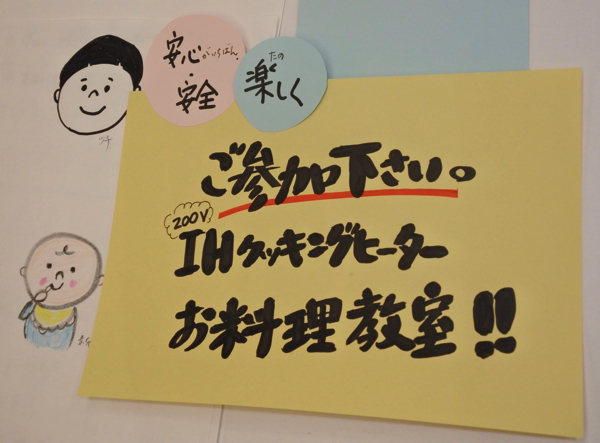 安心がいちばん。
安全
たの
楽しく
ご参加下さい。
200V
IHクッキングヒーター
お料理教室!!